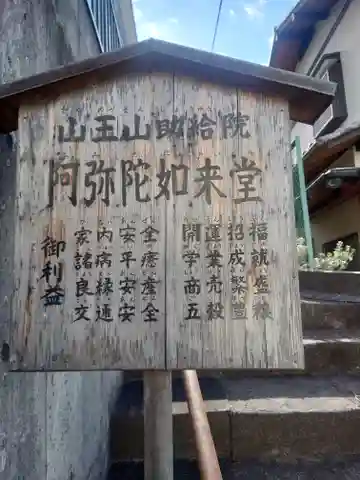 山王山助給院
阿弥陀如来堂
御利益
家内安全
諸病平癒
良縁安産
交通安全
開運招福
学業成就
商売繁盛
五穀豊穣